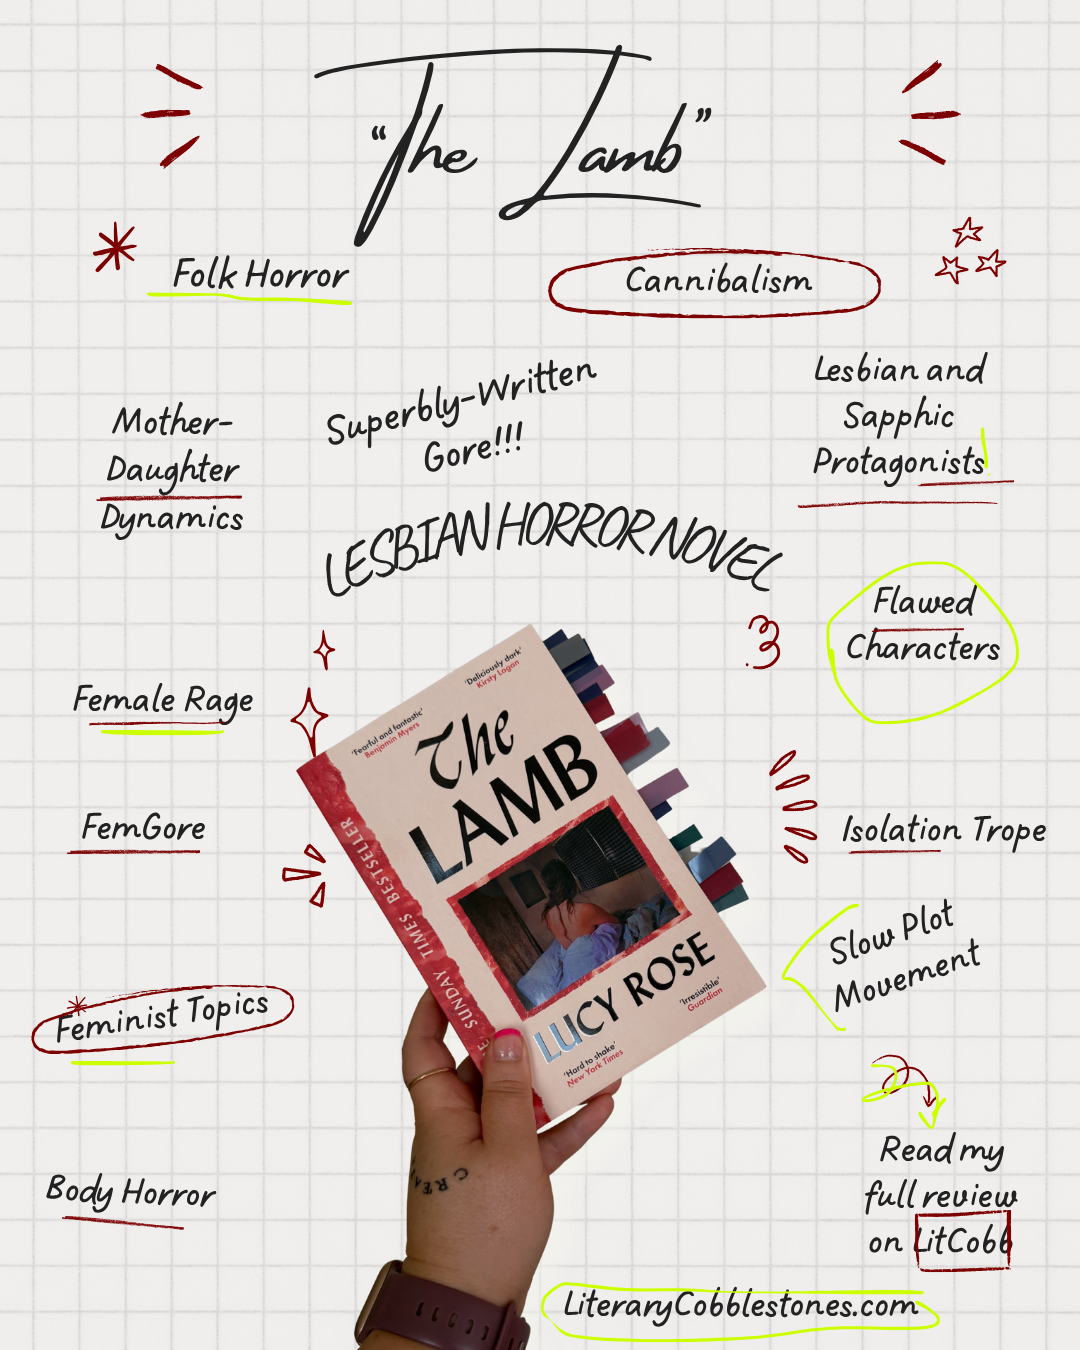 “The Lamb”
Folk Horror
Cannibalism
Superbly-Written
Gore!!!
Lesbian and
Sapphic
Protagonists!
Mother-
Daughter
Dynamics
LESBIAN HORROR NOVEL
Flawed
Characters
Female Rage
FemGore
Isolation Trope
Slow Plot
Movement
Feminist Topics
Body Horror
'Deliciously dark'
Kirsty Logan
'Fearful and fantastic'
Benjamin Myers
The
LAMB
SUNDAY TIMES BESTSELLER
LUCY ROSE
'Irresistible'
Guardian
'Hard to shake'
New York Times
Read my
full review
on LitCobb
LiteraryCobblestones.com